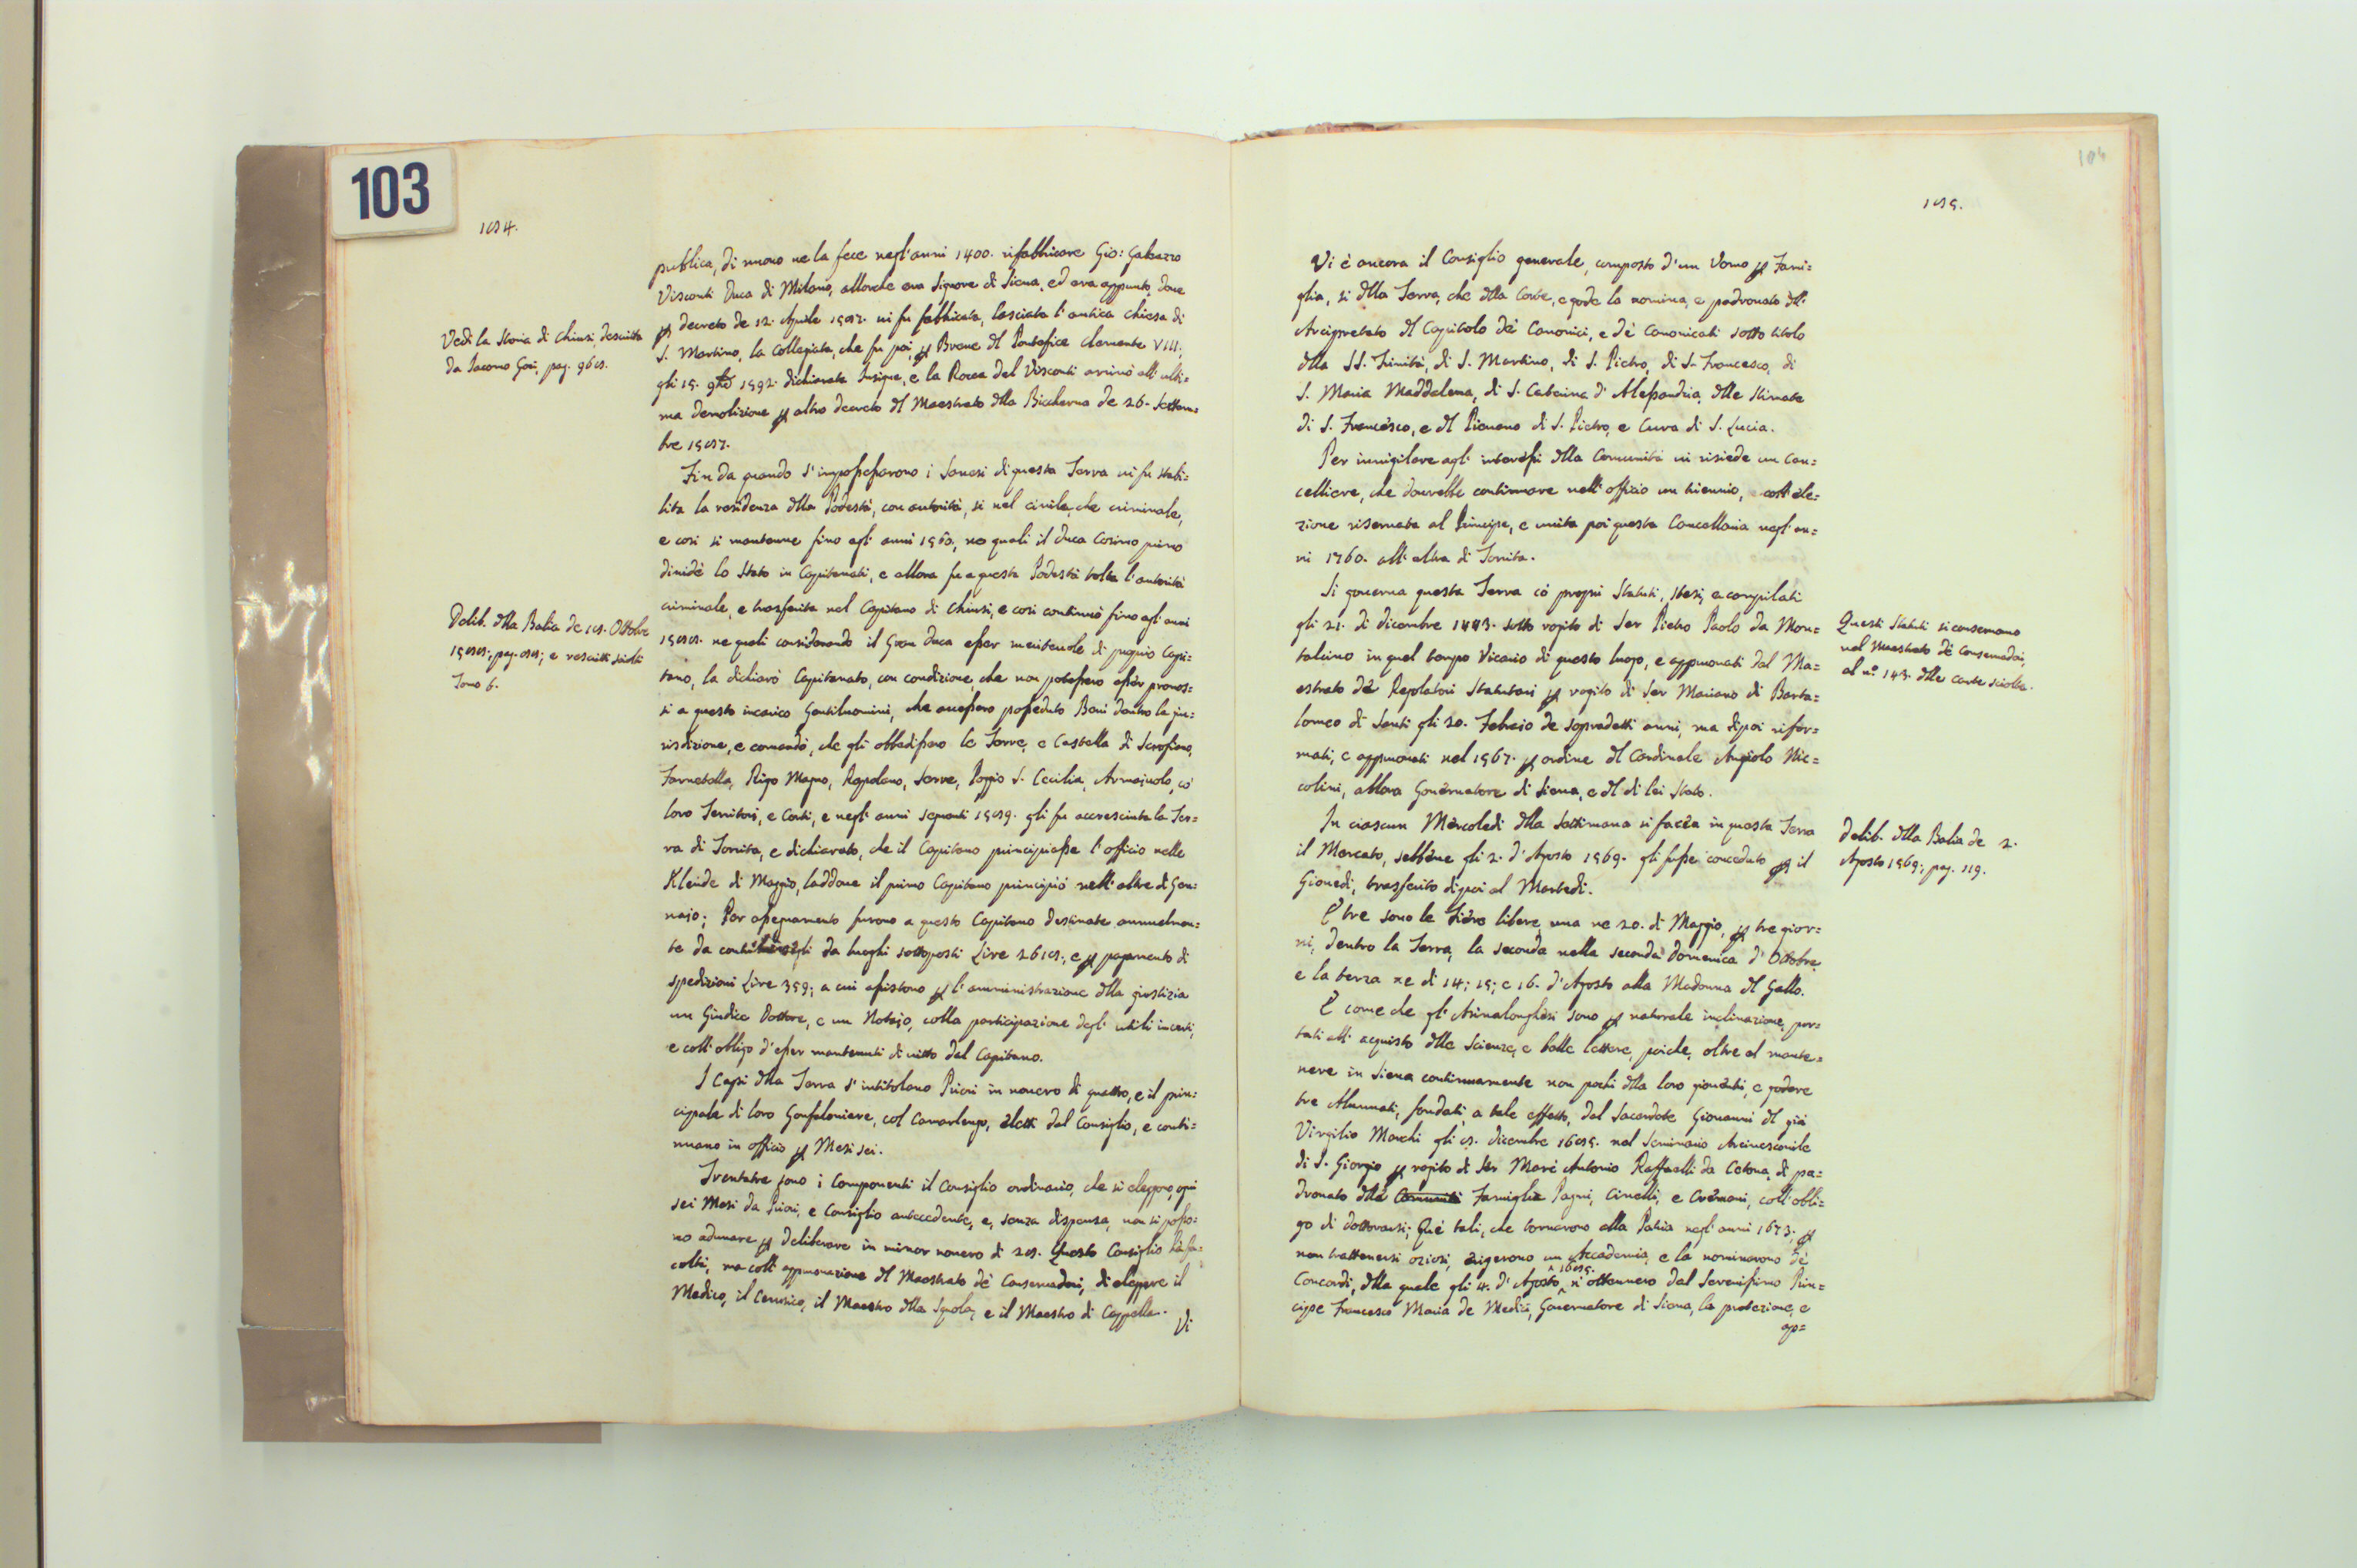 103
184.
publica, di nuovo ne la fece negl'anni 1400. rifabbricare Gio: Galeazzo
Visconti Duca di Milano, allorche era Signore di Siena, ed era appunto, dove
decreto de 12. Aprile vi fu fabbricata, lasciata l'antica chiesa di
S. Martino, la Collegiata, che fu poi, Breve dl Pontefice Clemente VIII;
gli 15. 9bre 1592. dichiarata Insigne, e la Rocca del Visconti arrivò all'ulti=
ma demolizione altro decreto dl Maestrato dlla Biccherna de 26. Settem=
bre
Vedi la Storia di Chiusi, descritta
da Jacomo Gori, pag. 968.
Fin da quando s'impossessarono i Sanesi di questa Terra vi fu stabi=
lita la residenza dlla Podestà, con autorità, si nel civile, che criminale,
e così si mantenne fino agl'anni 1560, ne quali il Duca Cosimo primo
divide lo Stato in Capitanati, e allora fu a questa Podestà tolta l'autorità
criminale, e trasferita nel Capitano di Chiusi, e così continuò fino agl'anni
1588. ne quali considerando il Gran Duca esser meritevole di proprio Capi=
tano, la dichiarò Capitanato, con condizione, che non potessero esser promos=
si a questo incarico Gentiluomini, che avessero posseduto Beni dentro la giu=
risdizione, e comandò, che gli obbedissero le Terre, e Castella di Scrofiano,
Farnetella, Rigo Magno, Rapolano, Serre, Poggio S. Cecilia, Armaiuolo, cò
loro Territori, e Corti, e negl'anni seguenti 1589. gli fu accresciuta la Ter=
ra di Torrita, e dichiarato, che il Capitano principiasse l'officio nelle
Klende di Maggio, laddove il primo Capitano principiò nell'altre di Gen=
naio; Per assegnamento furono a questo Capitano destinate annualmen=
te da luoghi sottoposti Lire 2618; e pagamento di
spedizioni Lire 359; a cui assistono l'amministrazione dlla giustizia
un Giudice Dottore, e un Notajo, colla participazione degl'utili incerti,
e coll'obligo d'esser mantenuti di vitto dal Capitano.
Delib. dlla Balia de 18. Ottobre
1588; pag. 88; e rescritti sciolti
Tomo 6.
I Capi dlla Terra s'intitolano Priori in novero di quattro, e il prin=
cipale di loro Gonfaloniere, col Camarlengo, eletti dal Consiglio, e conti=
nuano in officio Mesi sei.
Trentatre sono i Componenti il Consiglio ordinario, che si eleggono, ogni
sei Mesi da Priori, e Consiglio antecedente, e, senza dispensa, non si posso=
no adunare deliberare in minor novero di 28. Questo Consiglio hà fa=
coltà, ma coll'approvazione dl Maestrato dè Conservadori, di eleggere il
Medico, il Cerusico, il Maestro dlla Squola, e il Maestro di Cappella.
Vi
104
185.
Vi è ancora il Consiglio generale, composto d'un Uomo Fami=
glia, si dlla Terra, che dlla Corte, e gode la nomina, e padronato dll'
Arcipretato dl Capitolo dè Canonici, e dè Canonicati sotto titolo
dlla SS. Trinità, di S. Martino, di S. Pietro, di S. Francesco, di
S. Maria Maddalena, di S. Caterina d'Alessandria, dlle Stimate
di S. Francesco, e dl Pievano di S. Pietro, e Cura di S. Lucia.
Per invigilare agl'interessi dlla Comunità vi risiede un Can=
celliere, che dovrebbe continuare nell'officio un triennio, coll'ele=
zione riservata al Principe, e unita poi questa Cancellaria negl'an=
ni 1760. all'altra di Torrita.
Si governa questa Terra cò propri Statuti, stesi, e compilati
gli 21. di dicembre 1443. sotto rogito di Ser Pietro Paolo da Mon=
talcino in quel tempo Vicario di questo luogo, e approvati dal Ma=
estrato dè Regolatori Statutari rogito di Ser Mariano di Barto=
lomeo di Santi gli 20. Febraio de sopradetti anni, ma dipoi rifor=
mati, e approvati nel 1567. ordine dl Cardinale Angiolo Nic=
colini, allora Governatore di Siena, e dl di lei Stato.
Questi Statuti si conservano
nel Maestrato dè Conservadori,
al n.° 143. dlle carte sciolte.
In ciascun Mercoledì dlla Settimana si faceva in questa Terra
il Mercato, sebbene gli 2. d'Agosto 1569. gli fusse conceduto il
Giovedì, trasferito dipoi al Martedì.
Delib. dlla Balia de 2.
Agosto 1569; pag. 119.
E tre sono le Fiere libere, una ne 20. di Maggio, tre gior=
ni, dentro la Terra, la seconda nella seconda Domenica d'Ottobre,
e la terza ne di 14; 15; e 16. d'Agosto alla Madonna dl Gallo.
E come che gl'Asinalonghesi sono naturale inclinazione, por=
tati all'acquisto dlle Scienze, e belle lettere, poiche, oltre al mante=
nere in Siena continuamente non pochi dlla loro gioventù, e godere
tre Alunnati, fondati, a tale effetto, dal Sacerdote Giovanni dl già
Virgilio Marchi gli 8. dicembre 1685. nel Seminario Arcivescovile
di S. Giorgio rogito di Ser Marc'Antonio Raffaelli da Cetona, di pa=
dronato dlle Comunità Famiglie Pagni, Cinelli, e Cremani, coll'obli=
go di dottorarsi; Què tali, che tornarono alla Patria negl'anni 1673;
non trattenersi oziosi, erigerono un Accademia, e la nominarono dè
Concordi, dlla quale gli 4. d'Agosto, 1685. n'ottennero dal Serenissimo Prin=
cipe Francesco Maria de Medici, Governatore di Siena, la protezione, e
ap=